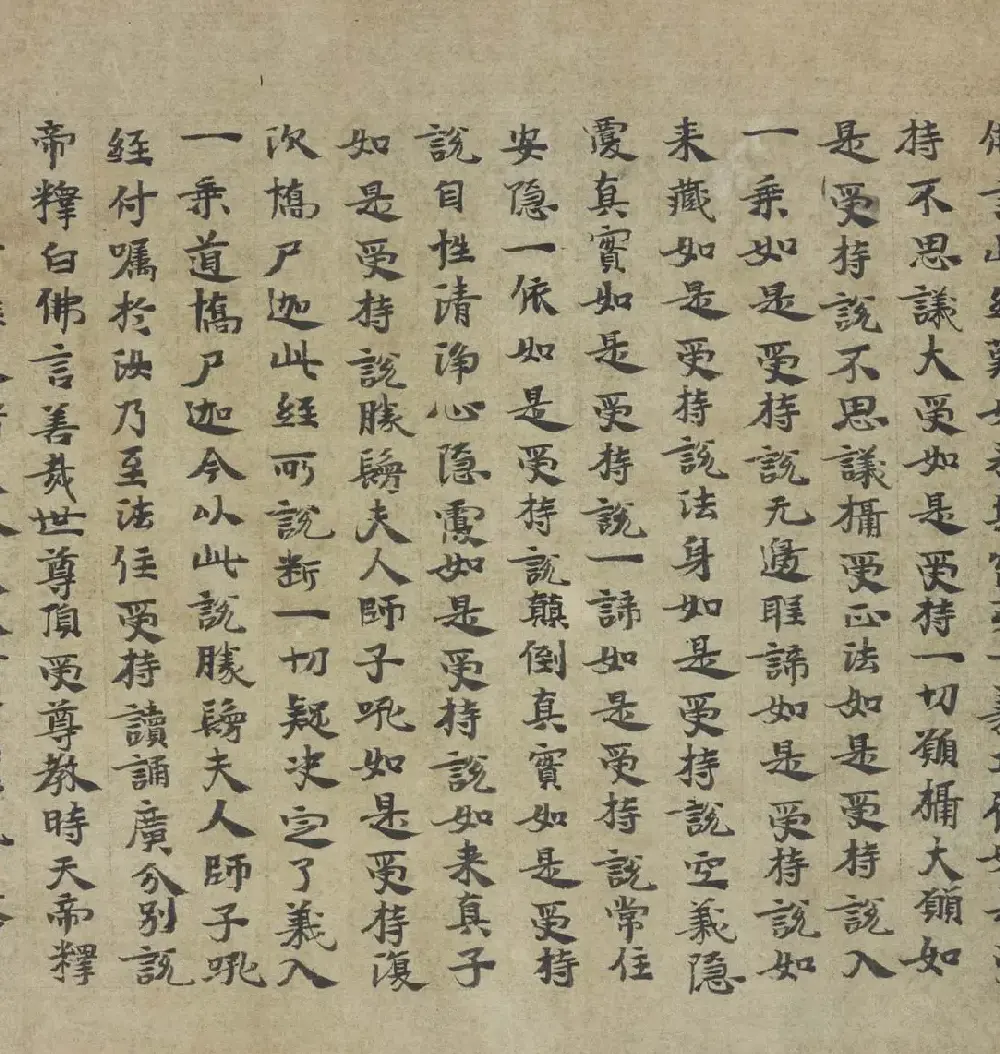 持不思議大受如是受持一切願攝大願如
是受持說不思議攝受正法如是受持說入
一乘如是受持說无邊聖諦如是受持說如
来藏如是受持說法身如是受持說空義隱
覆真實如是受持說一諦如是受持說常住
安隱一依如是受持說顛倒真實如是受持
說自性清淨心隱覆如是受持說如来真子
如是受持說勝鬘夫人師子吼如是受持復
次憍尸迦此經所說断一切疑决定了義入
一乘道憍尸迦今以此說勝鬘夫人師子吼
經付囑於汝乃至法住受持讀誦廣分別說
帝釋白佛言善哉世尊頂受尊教時天帝釋